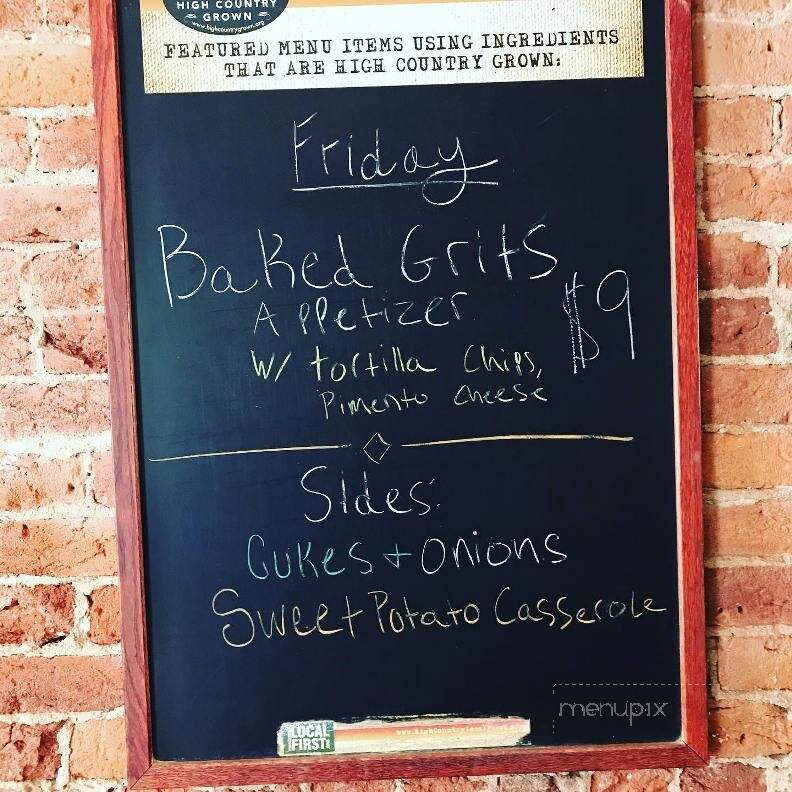 HIGH COUNTRY
GROWN
www.highcountrygrown.org
FEATURED MENU ITEMS USING INGREDIENTS
THAT ARE HIGH COUNTRY GROWN:
Friday
Baked Grits
Appetizer
$9
W/ tortilla chips,
Pimento cheese
Sides:
Cukes + Onions
Sweet Potato Casserole
menupix
LOCAL
FIRST